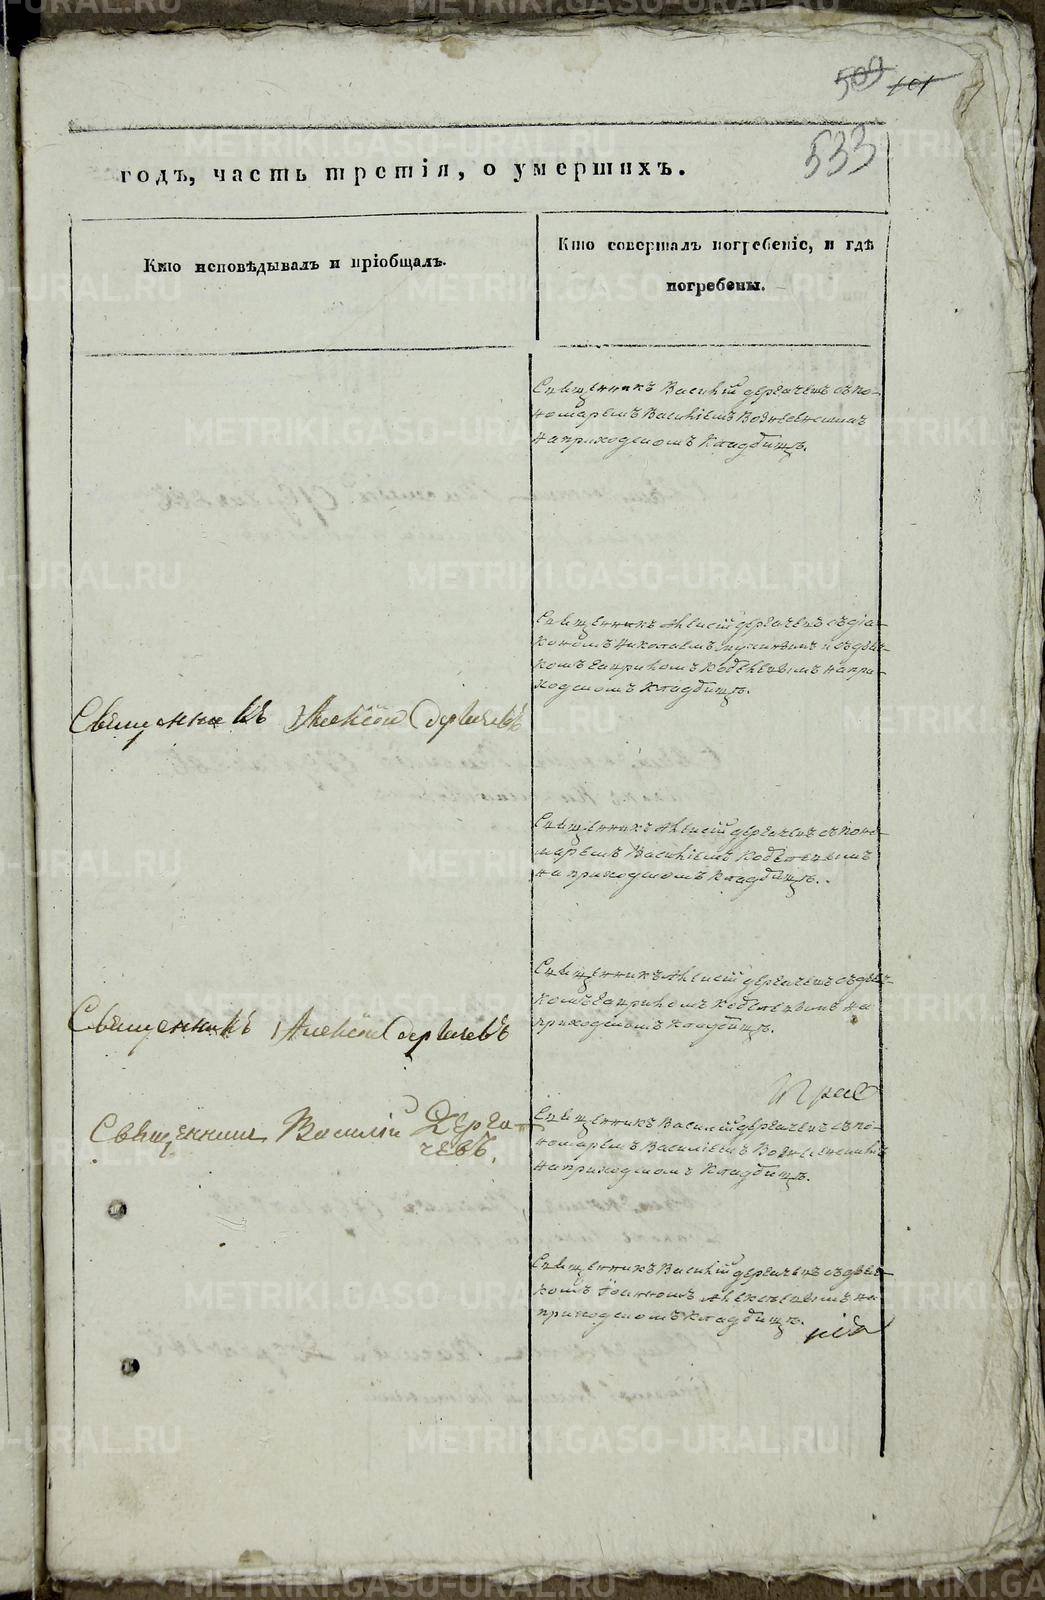 509 101
533
годъ, часть третія, о умершихъ.
Кто исповѣдывалъ и пріобщалъ.
Кто совершалъ погребеніе, и гдѣ
погребены.
Священникъ Василій Дергачевъ съ по-
номаремъ Василіемъ Вознесенскимъ
на приходскомъ кладбищѣ.
Священникъ Алексій Дергачевъ съ діа-
кономъ Николаемъ и съ дьяч-
комъ на при-
ходскомъ кладбищѣ.
Священникъ Алексій Дергачевъ
Священникъ Алексій Дергачевъ съ поно-
маремъ Василіемъ
на приходскомъ кладбищѣ.
Священникъ Алексій Дергачевъ съ дьяч-
комъ на
приходскомъ кладбищѣ.
Священникъ Алексій Дергачевъ
Священникъ Василій Дерга-
чевъ.
Священникъ Василій Дергачевъ съ по-
номаремъ Василіемъ Вознесенскимъ
на приходскомъ кладбищѣ.
Священникъ Василій Дергачевъ съ дьяч-
комъ Іоанномъ Алексѣевымъ на
приходскомъ кладбищѣ.
METRIKI.GASO-URAL.RU